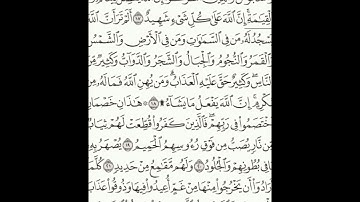 ٱلْقِيَٰمَةِ إِنَّ ٱللَّهَ عَلَىٰ كُلِّ شَىْءٍ شَهِيدٌ ١٧ أَلَمْ تَرَ أَنَّ ٱللَّهَ
يَسْجُدُ لَهُۥ مَن فِى ٱلسَّمَٰوَٰتِ وَمَن فِى ٱلْأَرْضِ وَٱلشَّمْسُ
وَٱلْقَمَرُ وَٱلنُّجُومُ وَٱلْجِبَالُ وَٱلشَّجَرُ وَٱلدَّوَآبُّ وَكَثِيرٌ مِّنَ
ٱلنَّاسِ ۖ وَكَثِيرٌ حَقَّ عَلَيْهِ ٱلْعَذَابُ ۗ وَمَن يُهِنِ ٱللَّهُ فَمَا لَهُۥ مِن
مُّكْرِمٍ ۚ إِنَّ ٱللَّهَ يَفْعَلُ مَا يَشَآءُ ۩ ١٨ ۞ هَٰذَانِ خَصْمَانِ
ٱخْتَصَمُوا۟ فِى رَبِّهِمْ ۖ فَٱلَّذِينَ كَفَرُوا۟ قُطِّعَتْ لَهُمْ
ثِيَابٌ مِّن نَّارٍ يُصَبُّ مِن فَوْقِ رُءُوسِهِمُ ٱلْحَمِيمُ ١٩ يُصْهَرُ بِهِۦ
مَا فِى بُطُونِهِمْ وَٱلْجُلُودُ ٢٠ وَلَهُم مَّقَٰمِعُ مِنْ حَدِيدٍ ٢١ كُلَّمَآ
أَرَادُوٓا۟ أَن يَخْرُجُوا۟ مِنْهَا مِنْ غَمٍّ أُعِيدُوا۟ فِيهَا وَذُوقُوا۟ عَذَابَ